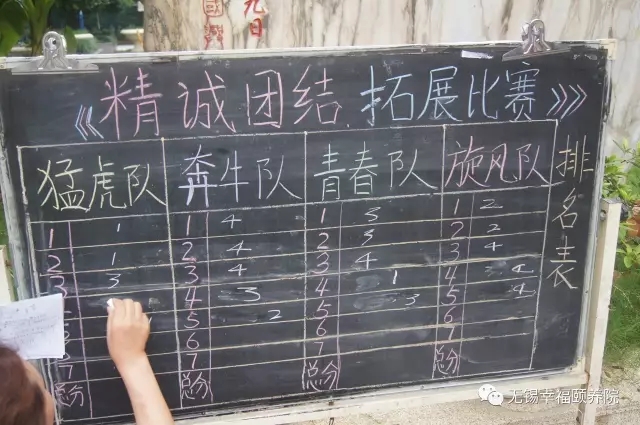 《精诚团结 拓展比赛》
猛虎队 奔牛队 青春队 旋风队 排名表
1 1 1 4 1 3 1 2
2 1 2 4 2 3 2 2
3 3 3 4 3 4 3 4
4 3 4 1 4 4
5 2 5 3 5 4
6 6 6
7 7 7 7
总分 总分 总分 总分
无锡幸福颐养院